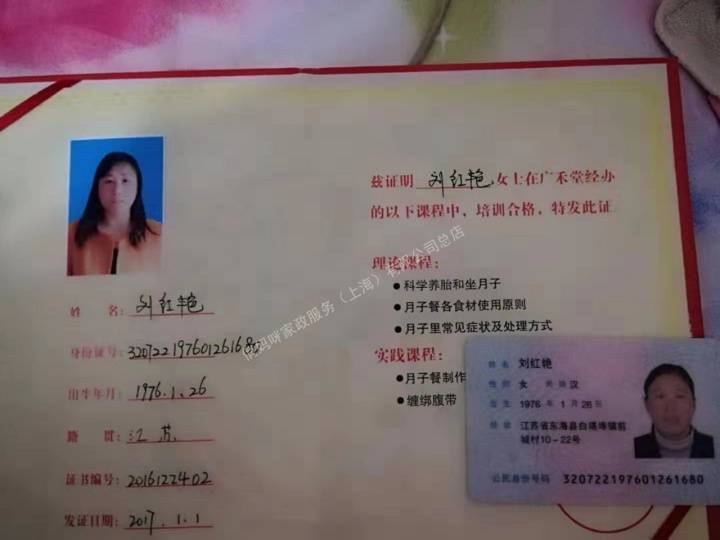 姓 名：刘红艳
身份证号：320722197601261680
出生年月：1976.1.26
籍 贯：江苏
证书编号：2016122402
发证日期：2017.1.1
兹证明 刘红艳 女士在广禾堂经办
的以下课程中，培训合格，特发此证
理论课程：
●科学养胎和坐月子
●月子餐各食材使用原则
●月子里常见症状及处理方式
实践课程：
●月子餐制作
●缠绑腹带
姓名 刘红艳
性别 女 民族 汉
出生 1976 年 1 月 26 日
住址 江苏省东海县白塔埠镇前
城村10-22号
公民身份号码 320722197601261680
妈咪家政服务（上海）有限公司总店